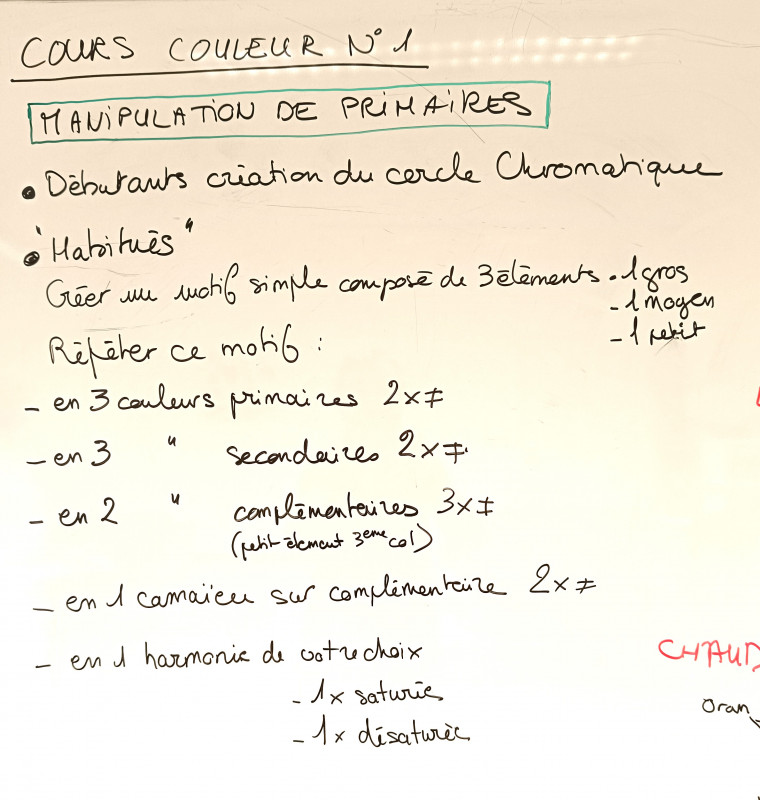 COURS COULEUR N° 1
MANIPULATION DE PRIMAIRES
• Débutants création du cercle Chromatique
• "Habitués"
Créer un motif simple composé de 3 éléments • 1 gros
- 1 moyen
- 1 petit
Répéter ce motif :
- en 3 couleurs primaires 2x≠
- en 3 " secondaires 2x≠
- en 2 " complémentaires 3x≠
(petit élément 3eme col)
- en 1 camaïeu sur complémentaire 2x≠
- en 1 harmonie de votre choix
- 1x saturée
- 1x désaturée
CHAUD
Oran